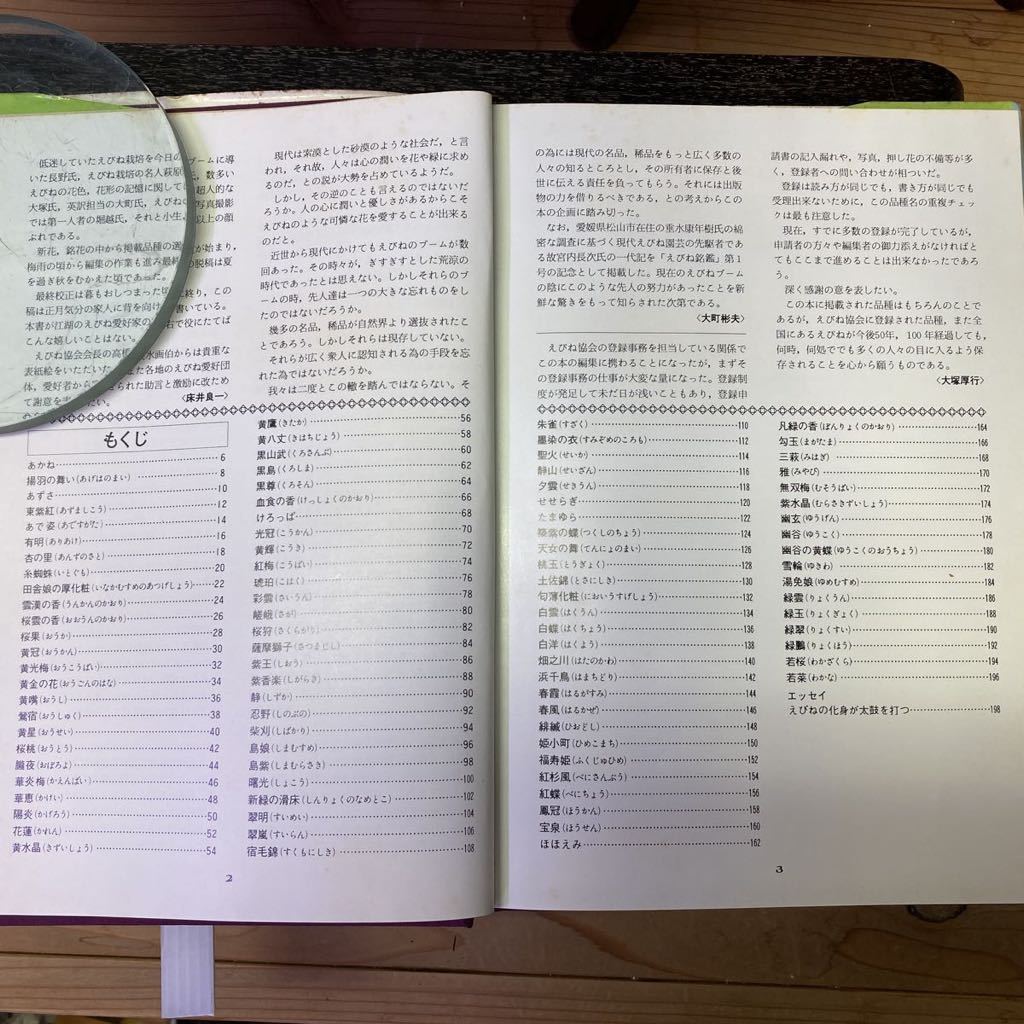 低迷していたえびね栽培を今日の ブームに導
いた長野氏，えびね栽培の名人萩原 氏，数多い
えびねの花色，花形の記憶に関して 超人的な
大塚氏，英訳担当の大町氏，えびね 写真撮影
では第一人者の堀越氏，それと小生， 以上の顔
ぶれである。
新花，銘花の中から掲載品種の選 が始まり，
梅雨の頃から編集の作業も進み最終 の脱稿は夏
を過ぎ秋をむかえた頃であった。
最終校正は暮もおしつまった頃に終り，この
稿は正月気分の家人に背を向け 書いている。
本書が江湖のえびね愛好家の 右で役にたてば
こんな嬉しいことはない。
えびね協会会長の高橋 水画伯からは貴重な
表紙絵をいただいた。また各地のえびね愛好団
体，愛好者から られた助言と激励に改ため
て謝意を たい。
〈床井良一〉
現代は索漠とした砂漠のような社会だ，と言
われ，それ故，人々は心の潤いを花や緑に求め
るのだ，との説が大勢を占めているようだ。
しかし，その逆のことも言えるのではないだ
ろうか。人の心に潤いと優しさがあるからこそ
えびねのような可憐な花を愛することが出来る
のだと。
近世から現代にかけてもえびねのブームが数
回あった。その時々が，ぎすぎすとした荒涼の
時代であったとは思えない。しかしそれらのブ
ームの時，先人達は一つの大きな忘れものをし
たのではないだろうか。
幾多の名品，稀品が自然界より選抜されたこ
とであろう。しかしそれらは現存していない。
それらが広く衆人に認知される為の手段を忘
れた為ではないだろうか。
我々は二度とこの轍を踏んではならない。そ
もくじ
あかね 6
揚羽の舞い（あげはのまい） 8
あずさ 10
東紫紅（あずましこう） 12
あで姿（あですがた） 14
有明（ありあけ） 16
杏の里（あんずのさと） 18
糸蜘蛛（いとぐも） 20
田舎娘の厚化粧（いなかむすめのあつげしょう） 22
雲漢の香（うんかんのかおり） 24
桜雲の香（おおうんのかおり） 26
桜果（おうか） 28
黄冠（おうかん） 30
黄光梅（おうこうばい） 32
黄金の花（おうごんのはな） 34
黄嘴（おうし） 36
鶯宿（おうしゅく） 38
黄星（おうせい） 40
桜桃（おうとう） 42
朧夜（おぼろよ） 44
華炎梅（かえんばい） 46
華恵（かけい） 48
陽炎（かげろう） 50
花蓮（かれん） 52
黄水晶（きずいしょう） 54
黄鷹（きたか） 56
黄八丈（きはちじょう） 58
黒山武（くろさんぶ） 60
黒島（くろしま） 62
黒尊（くろそん） 64
血食の香（けっしょくのかおり） 66
けろっぱ 68
光冠（こうかん） 70
黄輝（こうき） 72
紅梅（こうばい） 74
琥珀（こはく） 76
彩雲（さいうん） 78
嵯峨（さが） 80
桜狩（さくらがり） 82
薩摩獅子（さつまじし） 84
紫王（しおう） 86
紫香楽（しがらき） 88
静（しずか） 90
忍野（しのぶの） 92
柴刈（しばかり） 94
島娘（しまむすめ） 96
島紫（しまむらさき） 98
曙光（しょこう） 100
新緑の滑床（しんりょくのなめとこ） 102
翠明（すいめい） 104
翠嵐（すいらん） 106
宿毛錦（すくもにしき） 108
2
の為には現代の名品，稀品をもっと広く多数の
人々の知るところとし，その所有者に保存と後
世に伝える責任を負ってもらう。それには出版
物の力を借りるべきである，との考えからこの
本の企画に踏み切った。
なお，愛媛県松山市在住の重水康年樹氏の綿
密な調査に基づく現代えびね園芸の先駆者であ
る故宮内長次氏の一代記を「えびね銘鑑」第1
号の記念として掲載した。現在のえびねブーム
の陰にこのような先人の努力があったことを新
鮮な驚きをもって知らされた次第である。
〈大町彬夫〉
えびね協会の登録事務を担当している関係で
この本の編集に携わることになったが，まずそ
の登録事務の仕事が大変な量になった。登録制
度が発足して未だ日が浅いこともあり，登録申
請書の記入漏れや，写真，押し花の不備等が多
く，登録者への問い合わせが相ついだ。
登録は読み方が同じでも，書き方が同じでも
受理出来ないために，この品種名の重複チェッ
クは最も注意した。
現在，すでに多数の登録が完了しているが，
申請者の方々や編集者の御力添えがなければと
てもここまで進めることは出来なかったであろ
う。
深く感謝の意を表したい。
この本に掲載された品種はもちろんのことで
あるが，えびね協会に登録された品種，また全
国にあるえびねが今後50年，100年経過しても，
何時，何処ででも多くの人々の目に入るよう保
存されることを心から願うものである。
〈大塚厚行〉
朱雀（すざく） 110
墨染の衣（すみぞめのころも） 112
聖火（せいか） 114
静山（せいざん） 116
夕雲（せきうん） 118
せせらぎ 120
たまゆら 122
築紫の蝶（つくしのちょう） 124
天女の舞（てんにょのまい） 126
桃玉（とうぎょく） 128
土佐錦（とさにしき） 130
匂薄化粧（においうすげしょう） 132
白雲（はくうん） 134
白蝶（はくちょう） 136
白洋（はくよう） 138
畑之川（はたのかわ） 140
浜千鳥（はまちどり） 142
春霞（はるがすみ） 144
春風（はるかぜ） 146
緋縅（ひおどし） 148
姫小町（ひめこまち） 150
福寿姫（ふくじゅひめ） 152
紅杉風（べにさんぷう） 154
紅蝶（べにちょう） 156
鳳冠（ほうかん） 158
宝泉（ほうせん） 160
ほほえみ 162
凡緑の香（ぼんりょくのかおり） 164
勾玉（まがたま） 166
三萩（みはぎ） 168
雅（みやび） 170
無双梅（むそうばい） 172
紫水晶（むらさきずいしょう） 174
幽玄（ゆうげん） 176
幽谷（ゆうこく） 178
幽谷の黄蝶（ゆうこくのおうちょう） 180
雪輪（ゆきわ） 182
湯免娘（ゆめむすめ） 184
緑雲（りょくうん） 186
緑玉（りょくぎょく） 188
緑翠（りょくすい） 190
緑鵬（りょくほう） 192
若桜（わかざくら） 194
若菜（わかな） 196
エッセイ
えびねの化身が太鼓を打つ 198
3